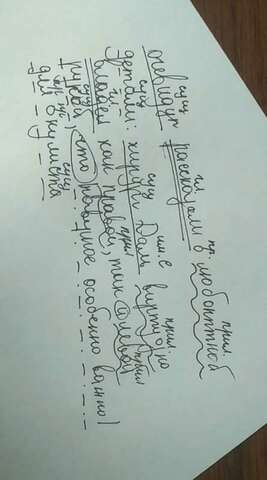 сущ гл пр. прил.
очевидцы рассказали о любопытной
сущ сущ им.с
детали: хирург Даль виртуозно
гл прил прил
владел как правой, так и левой
сущ
рукой, что особенно важно!
пр. сущ
для окулиста